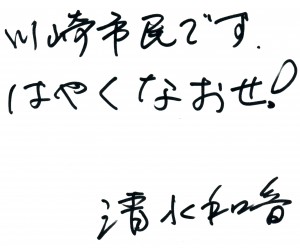 川崎市民です.
はやくなおせ!
清水和音